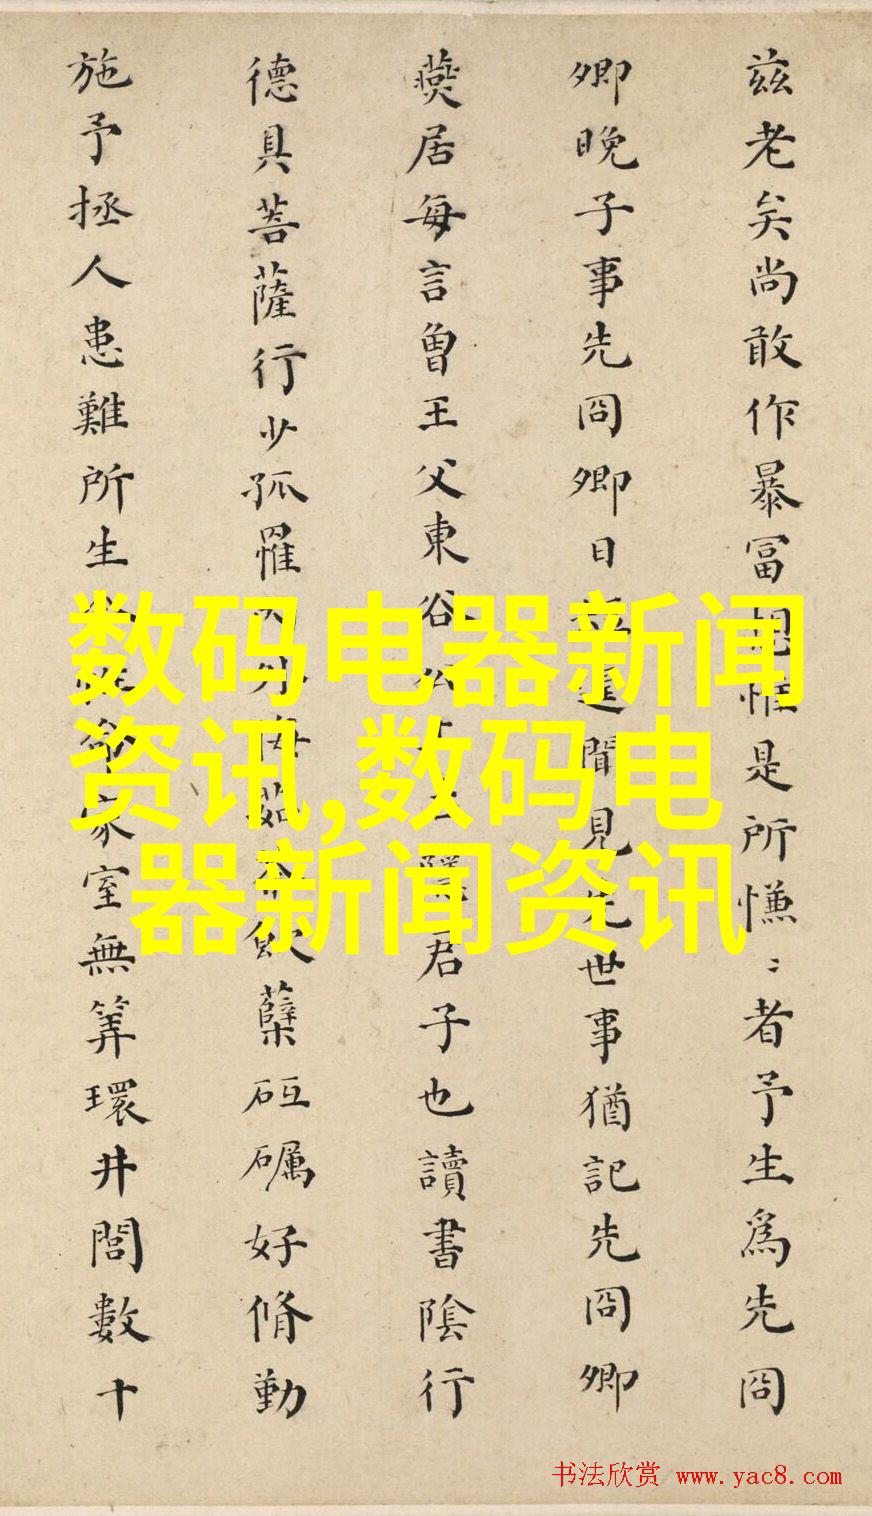 兹老矣尚敢作暴富想惟是所慊〻者予生為先冏
卿晚子事先冏卿日聞見先世事猶記先冏卿
燕居每言曾王父東谷公隱君子也讀書陰行
德具菩薩行少孤罹外侮茹荼飲蘖砥礪好脩勤
施予拯人患難所生家室無筭環井閭數十
数码电器新闻
资讯,数码电
器新闻资讯
书法欣赏 www.yac8.com